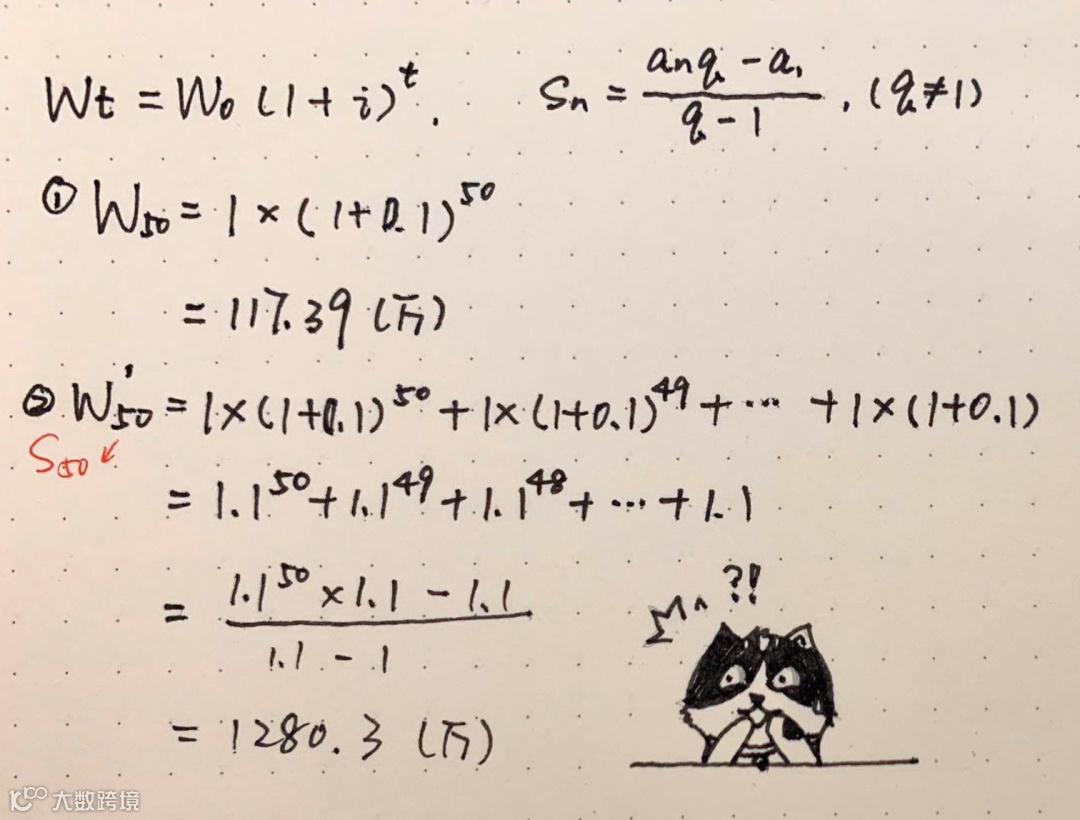 Wt = W₀(1+i)ᵗ. Sₙ = (aₙq - a₁)/(q - 1), (q≠1)
① W₅₀ = 1×(1+0.1)⁵⁰
= 117.39 (万)
② W'₅₀ = 1×(1+0.1)⁵⁰ + 1×(1+0.1)⁴⁹ + ··· + 1×(1+0.1)
S₅₀
= 1.1⁵⁰ + 1.1⁴⁹ + 1.1⁴⁸ + ··· + 1.1
= (1.1⁵⁰ × 1.1 - 1.1)/(1.1 - 1)
?!
= 1280.3 (万)
大数跨境